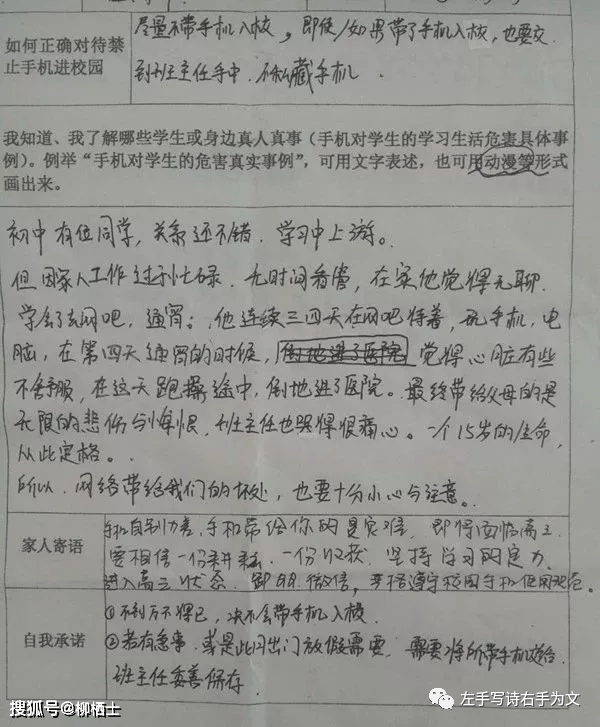 如何正确对待禁
止手机进校园
尽量不带手机入校，即使/如果带了手机入校，也要交
到班主任手中．不私藏手机．
我知道、我了解哪些学生或身边真人真事（手机对学生的学习生活危害具体事
例）。例举“手机对学生的危害真实事例”，可用文字表述，也可用动漫等形式
画出来。
初中有位同学，关系还不错．学习中上游。
但因家人工作过于忙碌．无时间看管，在家他觉得无聊．
学会了去网吧，通宵；他连续三四天在网吧待着，玩手机，电
脑，在第四天通宵的时候，倒地进了医院 觉得心脏有些
不舒服，在这天跑操途中，倒地进了医院。最终带给父母的是
无限的悲伤与悔恨．班主任也哭得很痛心。一个15岁的生命，
从此定格。
所以．网络带给我们的坏处，也要十分小心与注意。
家人寄语
手机自制力差，手机带给你的是灾难．即将面临高三．
要相信一份耕耘．一份收获．坚持学习的定力．
进入高三状态．卸QQ．微信，严格遵守校园手机使用规范。
自我承诺
①不到万不得已，决不会带手机入校．
②若有急事．或是出门放假需要．需要将所带手机送给
班主任妥善保存．
搜狐号@柳栖士
左手写诗右手为文